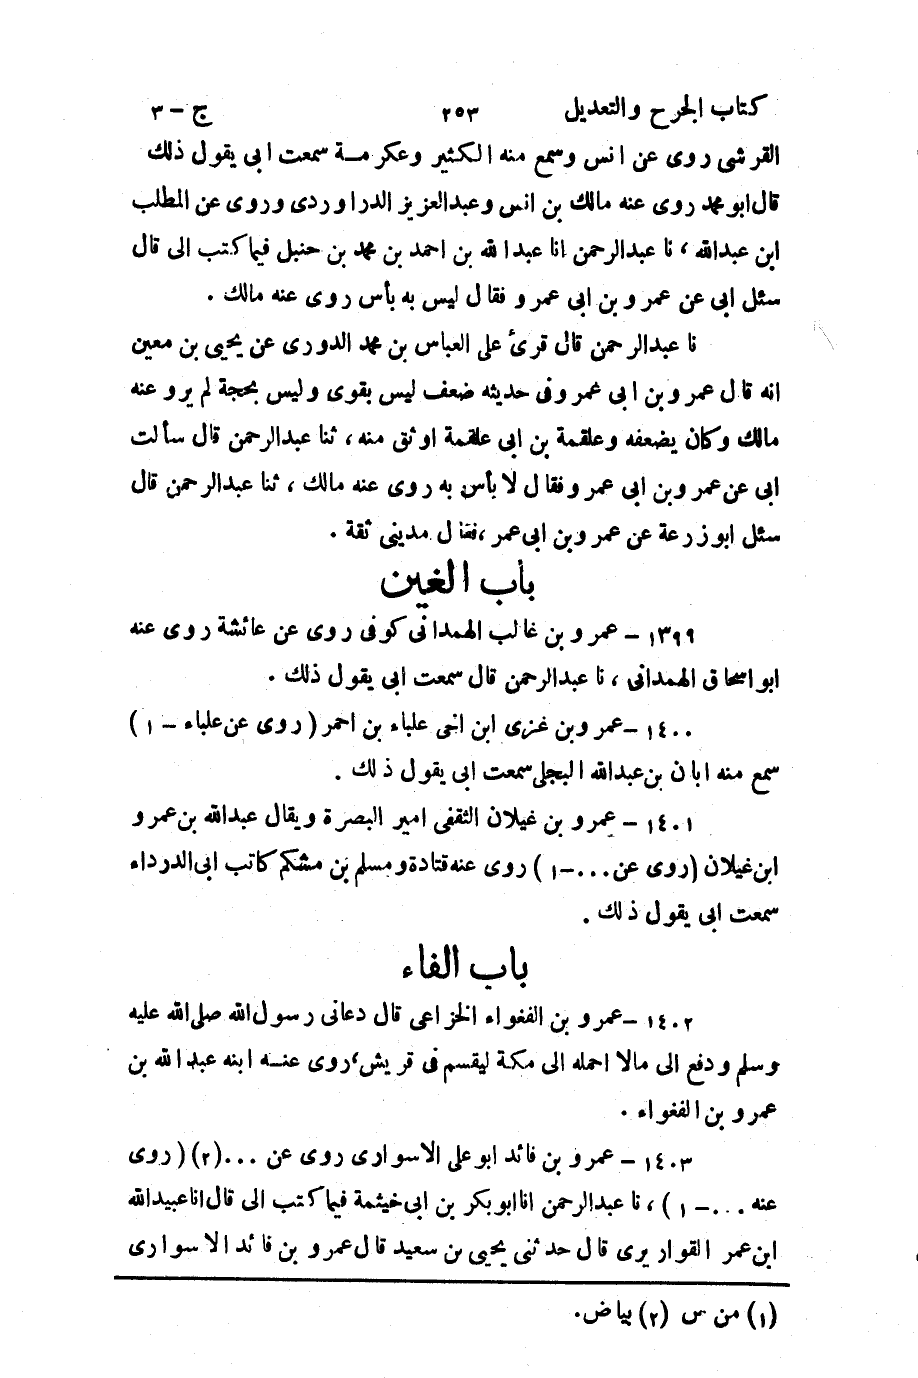 كتاب الجرح والتعديل ٢٥٣ ج - ٣
القرشى روى عن انس وسمع منه الكثير وعكرمة سمعت ابى يقول ذلك
قال ابو محمد روى عنه مالك بن انس وعبدالعزيز الدراوردى وروى عن المطلب
ابن عبدالله ، نا عبدالرحمن انا عبدالله بن احمد بن محمد بن حنبل فيما كتب الى قال
سئل ابى عن عمرو بن ابى عمرو فقال ليس به بأس روى عنه مالك .
نا عبدالرحمن قال قرئ على العباس بن محمد الدورى عن يحيى بن معين
انه قال عمرو بن ابى عمرو فى حديثه ضعف ليس بقوى وليس بحجة لم يرو عنه
مالك وكان يضعفه وعلقمة بن ابى علقمة اوثق منه ، ثنا عبدالرحمن قال سألت
ابى عن عمرو بن ابى عمرو فقال لا بأس به روى عنه مالك ، ثنا عبدالرحمن قال
سئل ابو زرعة عن عمرو بن ابى عمر ، فقال مدينى ثقة .
باب الغين
١٣٩٩ - عمرو بن غالب الهمدانى كوفى روى عن عائشة روى عنه
ابو اسحاق الهمدانى ، نا عبدالرحمن قال سمعت ابى يقول ذلك .
١٤٠٠ - عمرو بن غزى ابن اخى علباء بن احمر ( روى عن علباء - ١ )
سمع منه ابان بن عبدالله البجلى سمعت ابى يقول ذلك .
١٤٠١ - عمرو بن غيلان الثقفى امير البصرة ويقال عبدالله بن عمرو
ابن غيلان (روى عن ...-١ ) روى عنه قتادة ومسلم بن مشكم كاتب ابى الدرداء
سمعت ابى يقول ذلك .
باب الفاء
١٤٠٢ - عمرو بن الفغواء الخزاعى قال دعانى رسول الله صلى الله عليه
وسلم ودفع الى مالا احمله الى مكة ليقسم فى قريش، روى عنه ابنه عبدالله بن
عمرو بن الفغواء .
١٤٠٣ - عمرو بن فائد ابو على الاسوارى روى عن ...(٢) ( روى
عنه ...- ١ ) ، نا عبدالرحمن انا ابو بكر بن ابى خيثمة فيما كتب الى قال انا عبيدالله
ابن عمر القواريرى قال حدثنى يحيى بن سعيد قال عمرو بن فائد الاسوارى
(١) من س (٢) بياض.